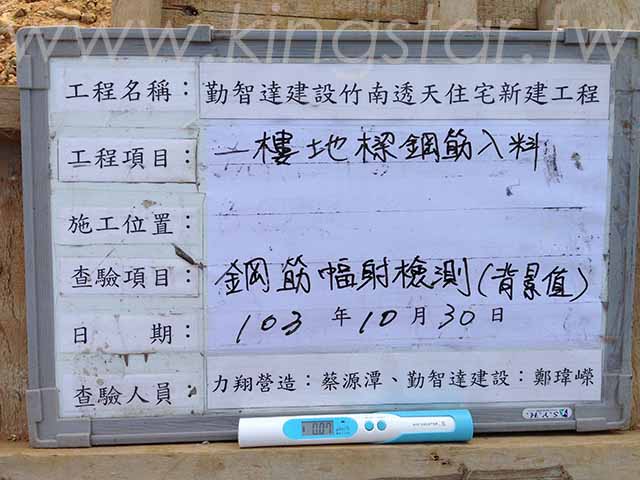 www.kingstar.tw
工程名稱： 勤智達建設竹南透天住宅新建工程
工程項目： 一樓地樑鋼筋入料
施工位置：
查驗項目： 鋼筋幅射檢測(背景值)
日　期： 103年10月30日
查驗人員： 力翔營造：蔡源潭、勤智達建設：鄭瑋嶸
0.07